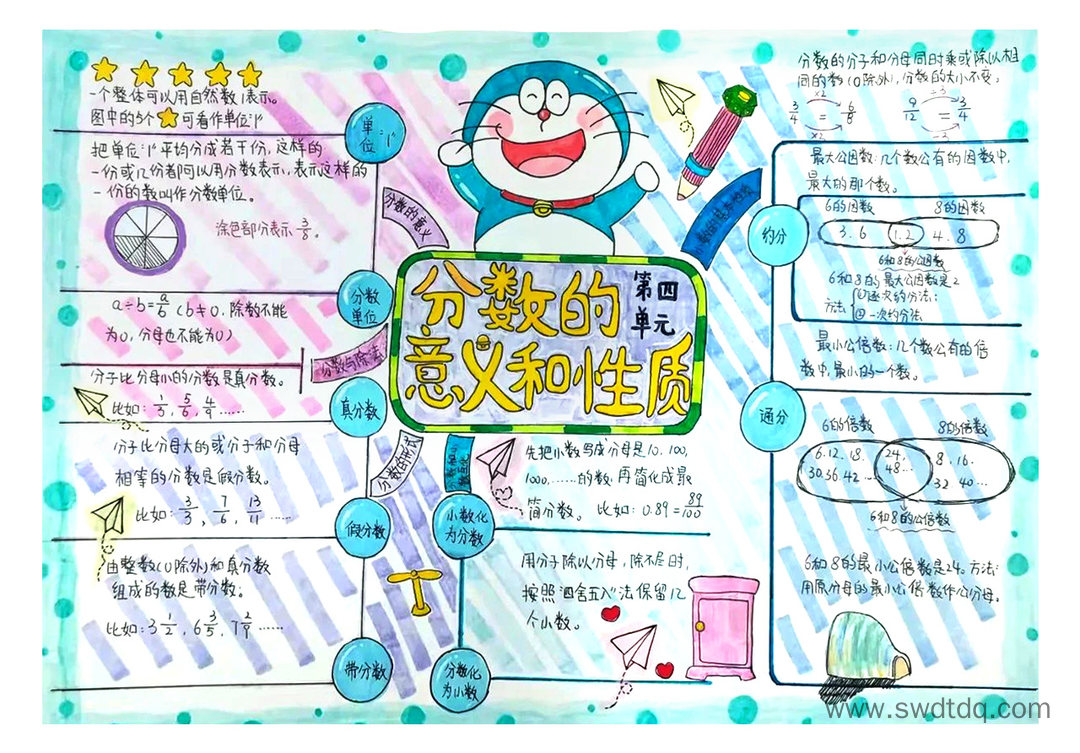 一个整体可以用自然数1表示。
图中的5个可看作单位"1"
单位"1"
把单位"1"平均分成若干份,这样的
一份或几份都可以用分数表示,表示这样的
一份的数叫作分数单位。
涂色部分表示3/8。
分数的意义
分数单位
a÷b=a/b(b≠0,除数不能
为0,分母也不能为0)
分数与除法
分子比分母小的分数是真分数。
比如:1/3,5/6,4/9……
真分数
分子比分母大的或分子和分母
相等的分数是假分数。
比如:3/3,7/6,13/11……
分数的形式
假分数
由整数(0除外)和真分数
组成的数是带分数。
比如:3 1/2,6 3/5,7 2/9……
带分数
第四单元
分数的
意义和性质
先把小数写成分母是10.100,
1000……的数,再简化成最
简分数。 比如:0.89=89/100
小数化为分数
用分子除以分母,除不尽时,
按照"四舍五入"法保留几
个小数。
分数化为小数
分数的分子和分母同时乘或除以相
同的数(0除外),分数的大小不变。
×2 ÷3
3/4=6/8 9/12=3/4
×2 ÷3
约分
最大公因数:几个数公有的因数中,
最大的那个数。
6的因数 8的因数
3.6 1.2 4.8
6和8的公因数
6和8的最大公因数是2
方法 ①逐次约分法;
②一次约分法
最小公倍数:几个数公有的倍
数中,最小的一个数。
通分
6的倍数 8的倍数
6.12.18. 24. 8.16.
30.36 42… 48… 32 40…
6和8的公倍数
6和8的最小公倍数是24。方法:
用原分母的最小公倍数作公分母。
www.swdtdq.com